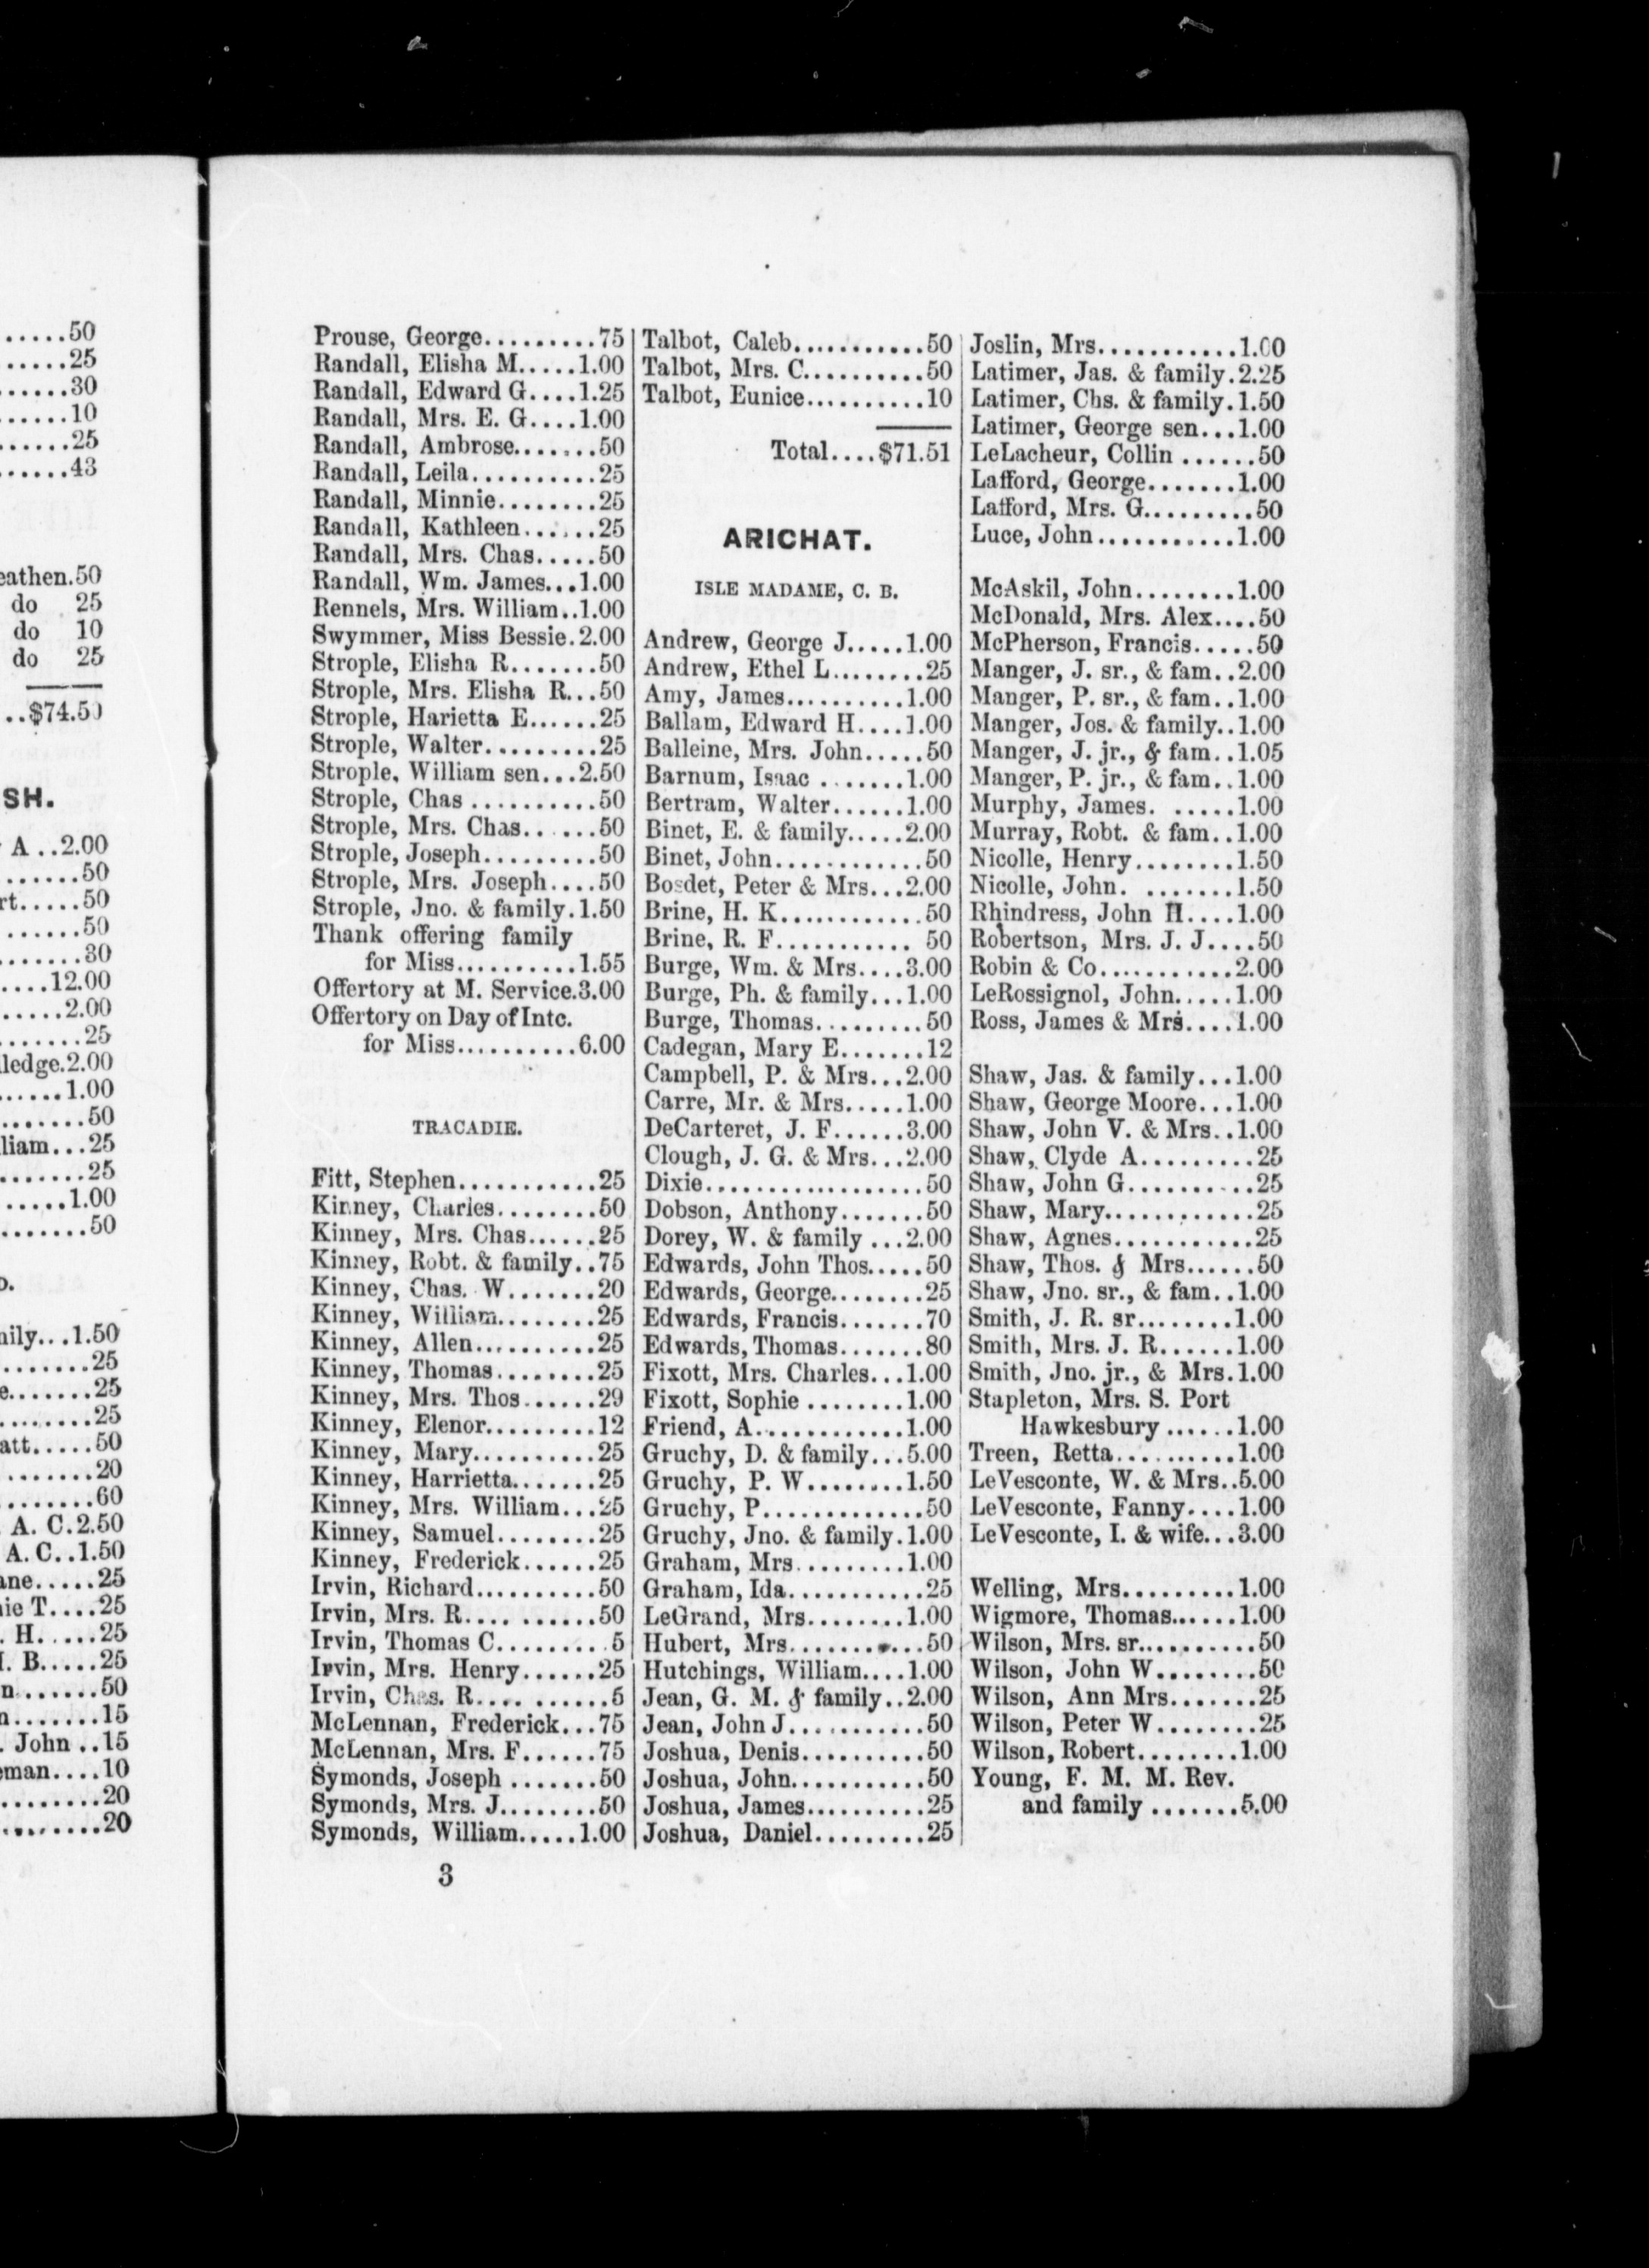 .....50
......25
......30
......10
.......25
......43
eathen.50
do 25
do 10
do 25
..$74.50
SH.
A ..2.00
.......50
rt.....50
......50
.......30
....12.00
.....2.00
.......25
lledge.2.00
......1.00
........50
lliam...25
.......25
.....1.00
........50
nily...1.50
........25
e.......25
........25
att.....50
........20
........60
A. C.2.50
A. C..1.50
ane.....25
nie T....25
. H.....25
I. B.....25
n.......50
n.......15
. John ..15
eman....10
.........20
.........20
Prouse, George.........75
Randall, Elisha M.....1.00
Randall, Edward G....1.25
Randall, Mrs. E. G....1.00
Randall, Ambrose.......50
Randall, Leila..........25
Randall, Minnie........25
Randall, Kathleen......25
Randall, Mrs. Chas.....50
Randall, Wm. James...1.00
Rennels, Mrs. William..1.00
Swymmer, Miss Bessie.2.00
Strople, Elisha R.......50
Strople, Mrs. Elisha R...50
Strople, Harietta E......25
Strople, Walter.........25
Strople, William sen...2.50
Strople, Chas ..........50
Strople, Mrs. Chas......50
Strople, Joseph.........50
Strople, Mrs. Joseph....50
Strople, Jno. & family.1.50
Thank offering family
for Miss..........1.55
Offertory at M. Service.3.00
Offertory on Day of Intc.
for Miss..........6.00
TRACADIE.
Fitt, Stephen...........25
Kinney, Charles........50
Kinney, Mrs. Chas......25
Kinney, Robt. & family..75
Kinney, Chas. W.......20
Kinney, William........25
Kinney, Allen..........25
Kinney, Thomas........25
Kinney, Mrs. Thos......29
Kinney, Elenor.........12
Kinney, Mary..........25
Kinney, Harrietta.......25
Kinney, Mrs. William...25
Kinney, Samuel........25
Kinney, Frederick......25
Irvin, Richard..........50
Irvin, Mrs. R.... ......50
Irvin, Thomas C.........5
Irvin, Mrs. Henry......25
Irvin, Chas. R.... ......5
McLennan, Frederick...75
McLennan, Mrs. F......75
Symonds, Joseph .......50
Symonds, Mrs. J........50
Symonds, William.....1.00
3
Talbot, Caleb...........50
Talbot, Mrs. C..........50
Talbot, Eunice..........10
Total....$71.51
ARICHAT.
ISLE MADAME, C. B.
Andrew, George J.....1.00
Andrew, Ethel L........25
Amy, James..........1.00
Ballam, Edward H....1.00
Balleine, Mrs. John.....50
Barnum, Isaac .......1.00
Bertram, Walter......1.00
Binet, E. & family.....2.00
Binet, John............50
Bosdet, Peter & Mrs...2.00
Brine, H. K............50
Brine, R. F........... 50
Burge, Wm. & Mrs....3.00
Burge, Ph. & family...1.00
Burge, Thomas.........50
Cadegan, Mary E.......12
Campbell, P. & Mrs...2.00
Carre, Mr. & Mrs.....1.00
DeCarteret, J. F......3.00
Clough, J. G. & Mrs...2.00
Dixie...................50
Dobson, Anthony.......50
Dorey, W. & family ...2.00
Edwards, John Thos.....50
Edwards, George........25
Edwards, Francis.......70
Edwards, Thomas.......80
Fixott, Mrs. Charles...1.00
Fixott, Sophie ........1.00
Friend, A............1.00
Gruchy, D. & family...5.00
Gruchy, P. W........1.50
Gruchy, P.............50
Gruchy, Jno. & family.1.00
Graham, Mrs.........1.00
Graham, Ida............25
LeGrand, Mrs........1.00
Hubert, Mrs...........50
Hutchings, William....1.00
Jean, G. M. & family..2.00
Jean, John J............50
Joshua, Denis..........50
Joshua, John...........50
Joshua, James..........25
Joshua, Daniel.........25
Joslin, Mrs...........1.00
Latimer, Jas. & family.2.25
Latimer, Chs. & family.1.50
Latimer, George sen...1.00
LeLacheur, Collin ......50
Lafford, George.......1.00
Lafford, Mrs. G.........50
Luce, John...........1.00
McAskil, John........1.00
McDonald, Mrs. Alex....50
McPherson, Francis.....50
Manger, J. sr., & fam..2.00
Manger, P. sr., & fam..1.00
Manger, Jos. & family..1.00
Manger, J. jr., & fam..1.05
Manger, P. jr., & fam..1.00
Murphy, James. .....1.00
Murray, Robt. & fam..1.00
Nicolle, Henry........1.50
Nicolle, John. .......1.50
Rhindress, John H....1.00
Robertson, Mrs. J. J....50
Robin & Co...........2.00
LeRossignol, John.....1.00
Ross, James & Mrs....1.00
Shaw, Jas. & family...1.00
Shaw, George Moore...1.00
Shaw, John V. & Mrs..1.00
Shaw, Clyde A.........25
Shaw, John G..........25
Shaw, Mary............25
Shaw, Agnes...........25
Shaw, Thos. & Mrs......50
Shaw, Jno. sr., & fam..1.00
Smith, J. R. sr........1.00
Smith, Mrs. J. R......1.00
Smith, Jno. jr., & Mrs.1.00
Stapleton, Mrs. S. Port
Hawkesbury ......1.00
Treen, Retta..........1.00
LeVesconte, W. & Mrs..5.00
LeVesconte, Fanny....1.00
LeVesconte, I. & wife...3.00
Welling, Mrs.........1.00
Wigmore, Thomas......1.00
Wilson, Mrs. sr..........50
Wilson, John W........50
Wilson, Ann Mrs.......25
Wilson, Peter W........25
Wilson, Robert........1.00
Young, F. M. M. Rev.
and family .......5.00